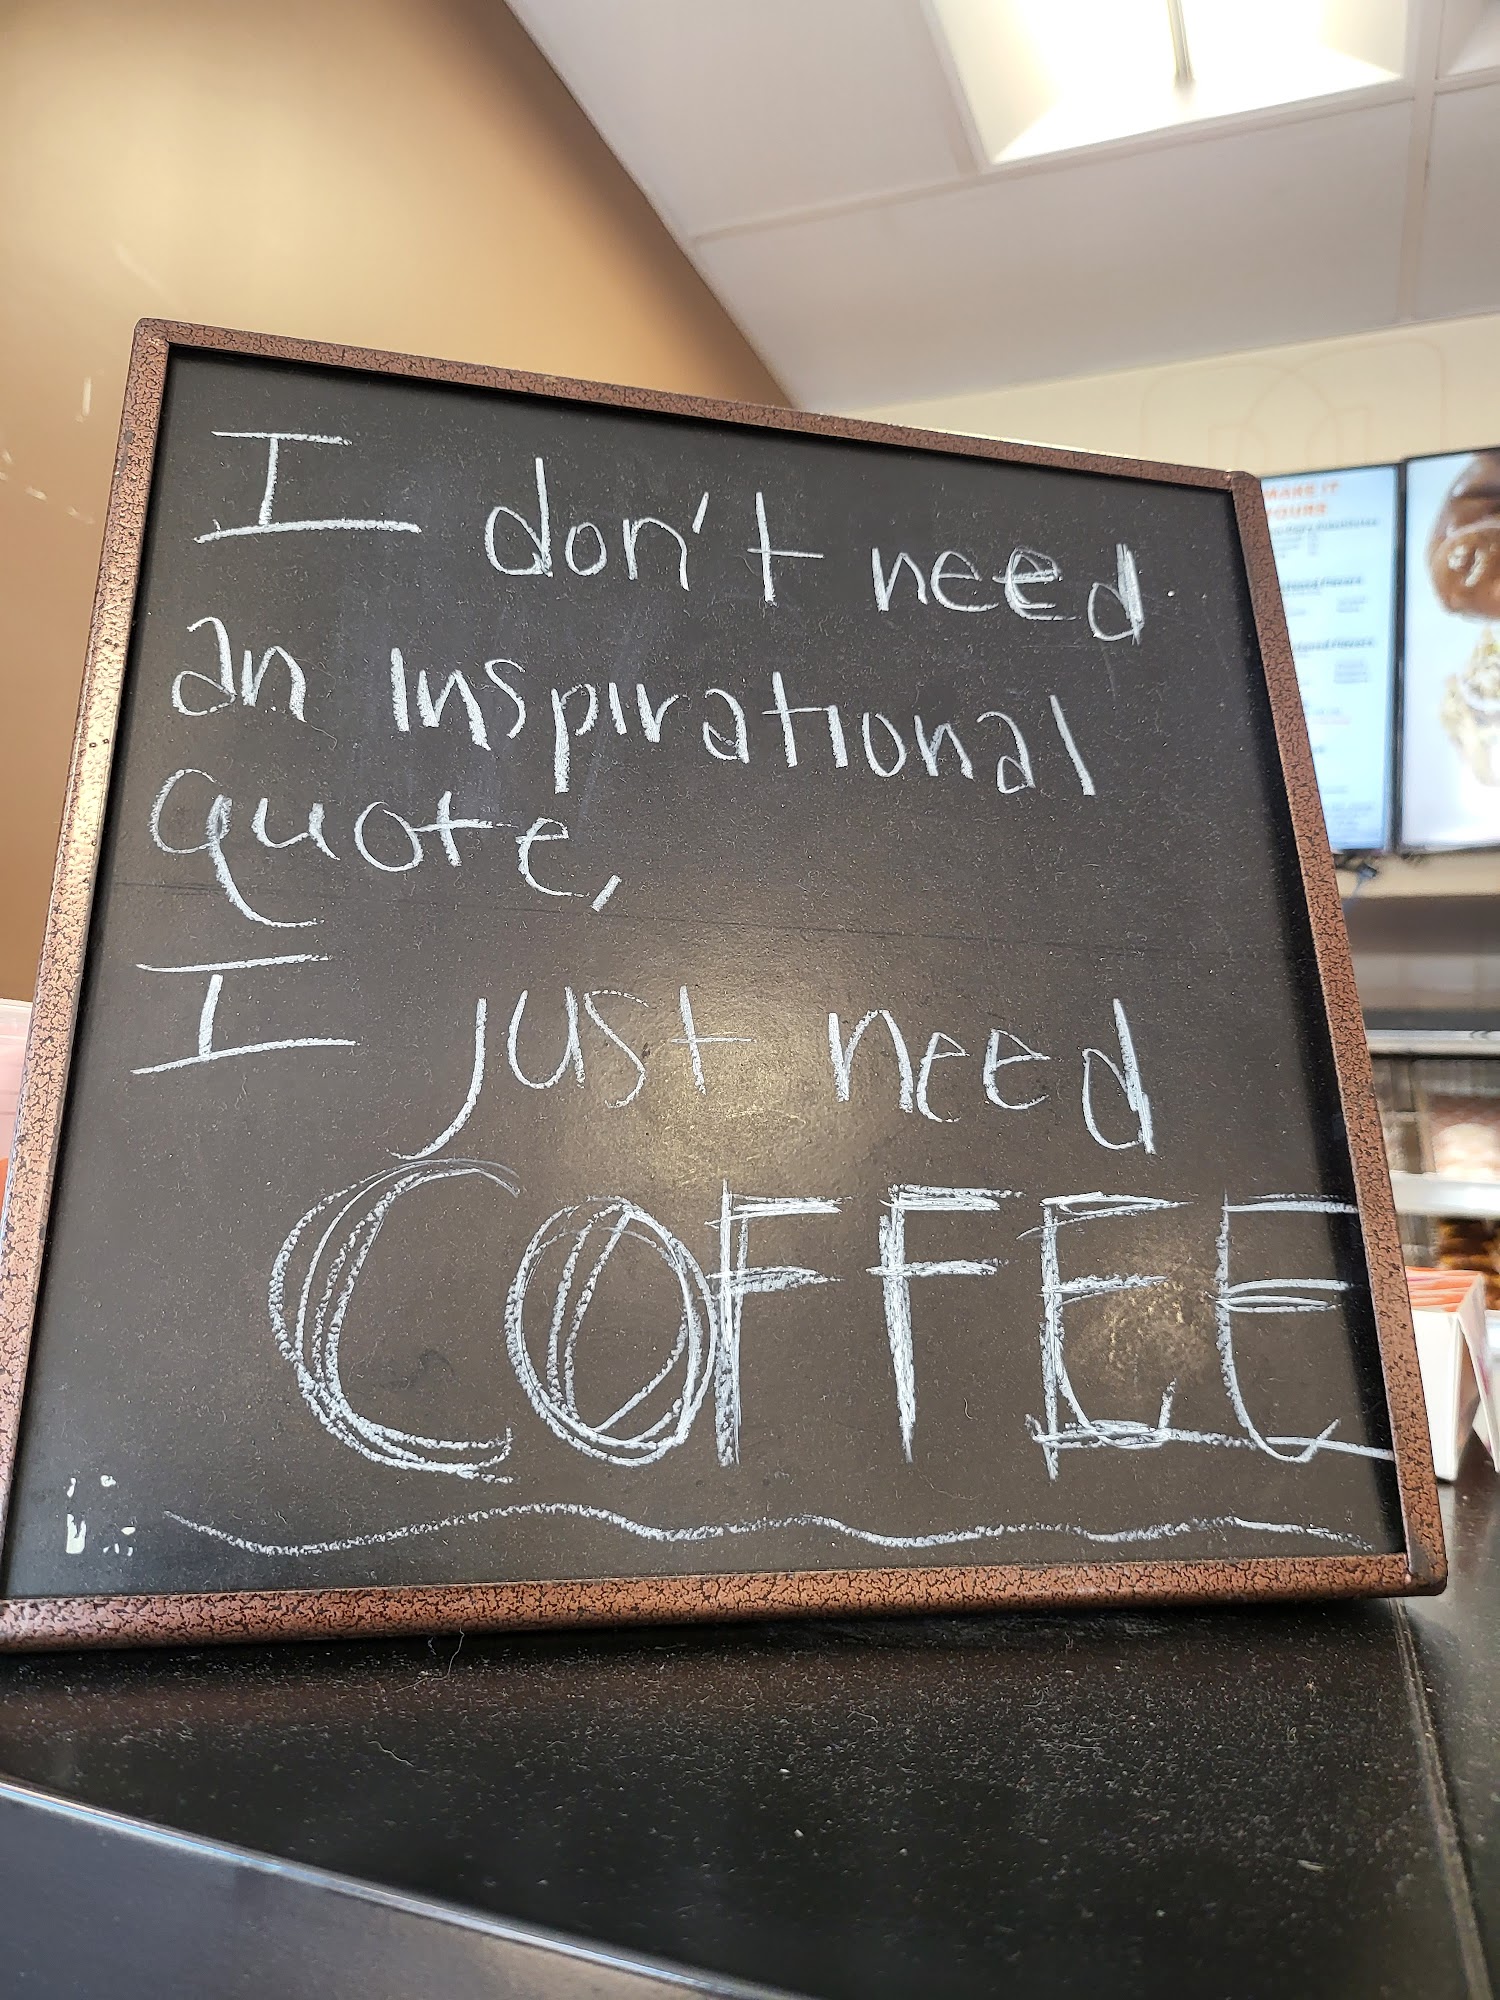 I don't need
an inspirational
quote,
I just need
COFFEE
MAKE IT
YOURS